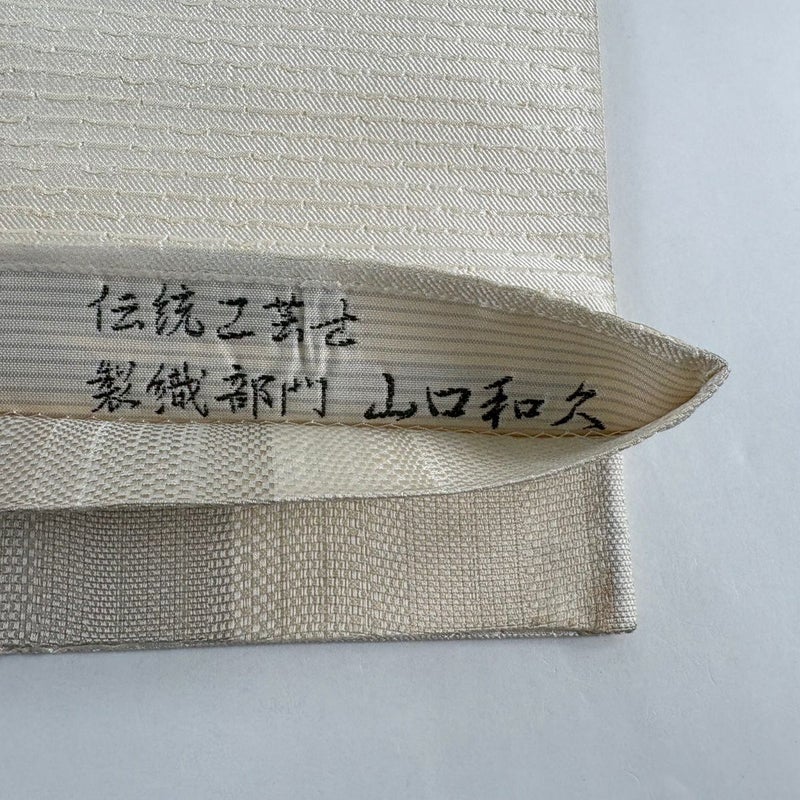 伝統工芸士
製織部門 山口和久